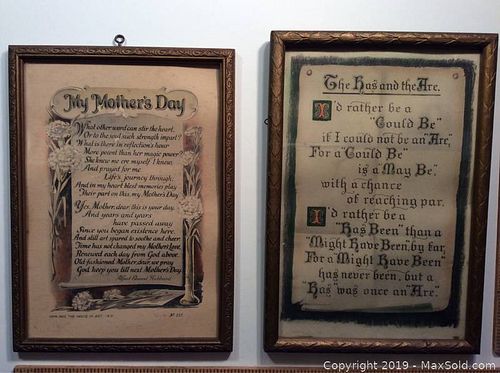 My Mother's Day
What other word can stir the heart,
Or to the soul such strength impart?
What is there in reflection's hour
More potent than her magic power
She knew me ere myself I knew
And prayed for me
Life's journey through;
And in my heart blest memories play
Their part on this, my Mother's Day
Yes, Mother, dear, this is your day,
And years and years
have passed away
Since you began existence here.
And still art spared to soothe and cheer,
Time has not changed my Mother's Love,
Renewed each day from God above.
Old-fashioned Mother, dear, we pray
God keep you till next Mother's Day.
The Has and the Are.
I'd rather be a
"Could Be"
if I could not be an "Are,"
For a "Could Be"
is a "May Be,"
with a chance
of reaching par.
I'd rather be a
"Has Been" than a
"Might Have Been," by far,
For a "Might Have Been"
has never been, but a
"Has" was once an "Are."
Copyright © 2019 - MaxSold.com